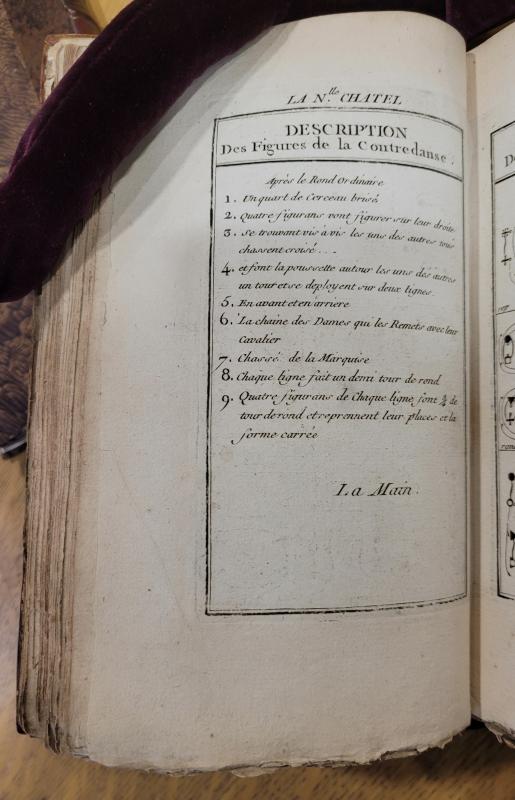 LA N.lle CHATEL
DESCRIPTION
Des Figures de la Contredanse.
Après le Rond Ordinaire
1. Un quart de Cerceau brisé
2. Quatre figurans vont figurer sur leur droite
3. Se trouvant vis à vis les uns des autres tous
chassent croisé...
4. et font la poussette autour les uns des autres
un tour et se deployent sur deux lignes
5. En avant et en arriere
6. La chaine des Dames qui les Remets avec leur
Cavalier
7. Chassé de la Marquise
8. Chaque ligne fait un demi tour de rond
9. Quatre figurans de Chaque ligne font ¾ de
tour de rond et reprennent leur places et la
forme carrée
La Main.